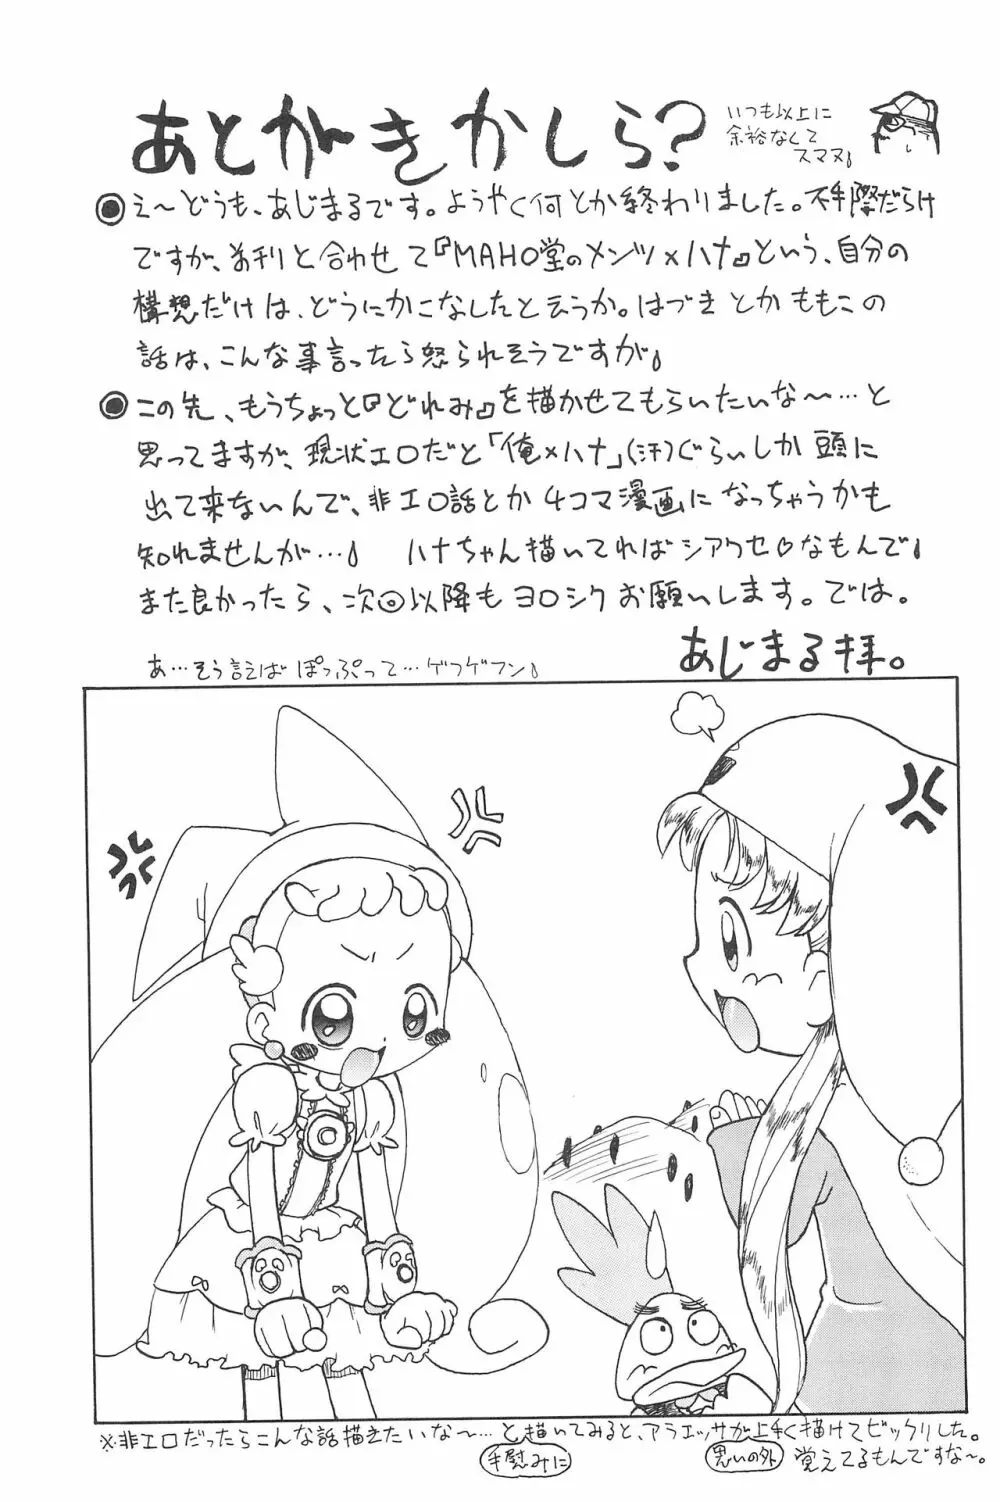 あとがきかしら?
いつも以上に
余裕なくて
スマヌ♪
◎え〜どうも、あじまるです。ようやく何とか終わりました。不手際だらけ
ですが、前刊と合わせて『MAHO堂のメンツ×ハナ』という、自分の
構想だけは、どうにかこなしたと云うか。はづきとかももこの
話は、こんな事言ったら怒られそうですが♪
◎この先、もうちょっと『どれみ』を描かせてもらいたいな〜…と
思ってますが、現状エロだと「俺×ハナ」(汗)ぐらいしか頭に
出て来ないんで、非エロ話とか4コマ漫画になっちゃうかも
知れませんが…♪ ハナちゃん描いてればシアワセ♡なもんで♪
また良かったら、次回以降もヨロシクお願いします。では。
あじまる拝。
あ…そう言えばぽっぷって…ゲフゲフン♪
※非エロだったらこんな話描きたいな〜…と描いてみると、アラエッサが上手く描けてビックリした。
手慰みに
思いの外
覚えてるもんですな〜。